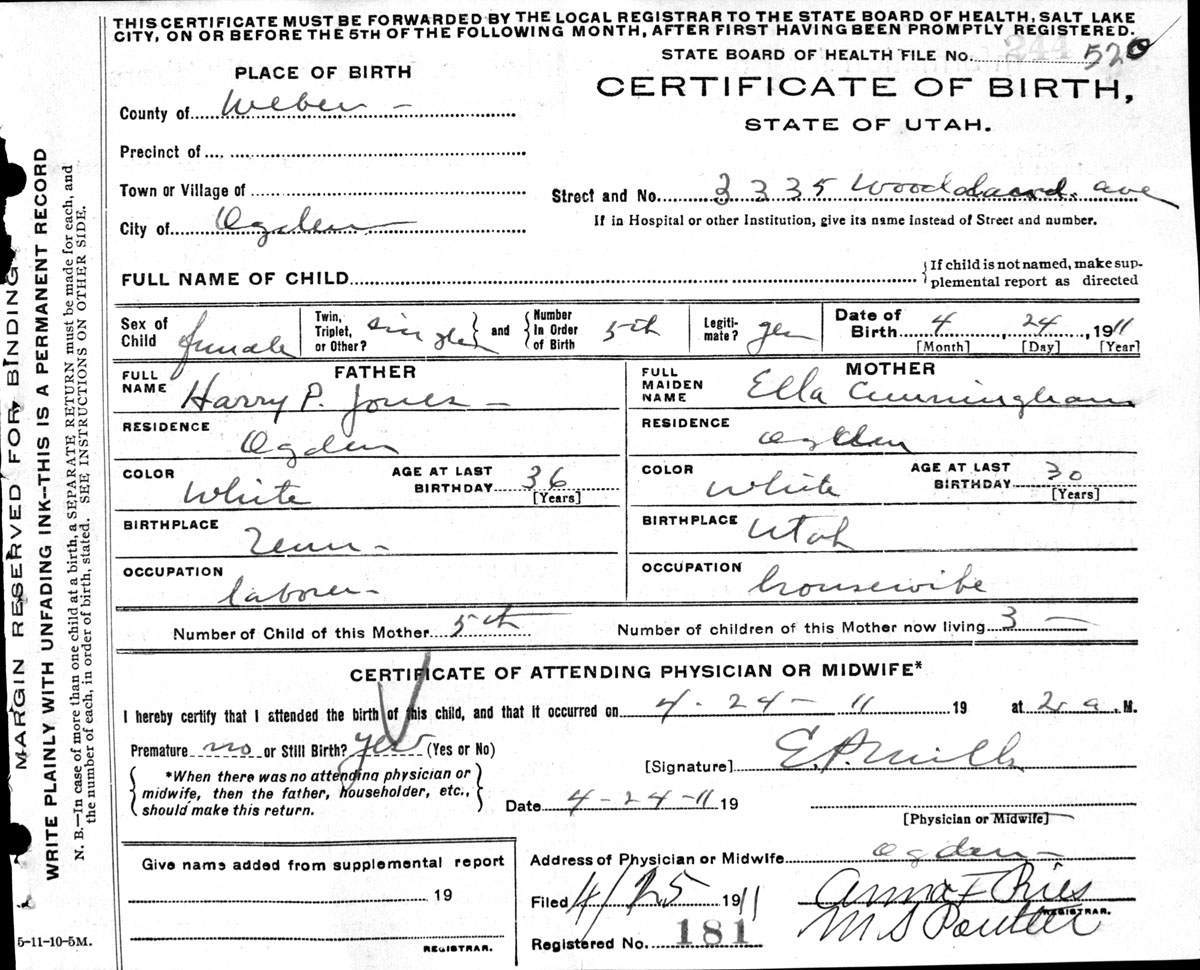 THIS CERTIFICATE MUST BE FORWARDED BY THE LOCAL REGISTRAR TO THE STATE BOARD OF HEALTH, SALT LAKE
CITY, ON OR BEFORE THE 5TH OF THE FOLLOWING MONTH, AFTER FIRST HAVING BEEN PROMPTLY REGISTERED.
STATE BOARD OF HEALTH FILE No. 244 520
PLACE OF BIRTH
CERTIFICATE OF BIRTH,
STATE OF UTAH.
County of Weber
Precinct of
Town or Village of
Street and No. 3335 ave
City of Ogden
If in Hospital or other Institution, give its name instead of Street and number.
FULL NAME OF CHILD
If child is not named, make sup-
plemental report as directed
Sex of Child female
Twin, Triplet, or Other? single and Number In Order of Birth 5th
Legiti-mate? yes
Date of Birth 4, 24, 1911
[Month] [Day] [Year]
FATHER
FULL NAME Harry P. Jones
RESIDENCE Ogden
COLOR White AGE AT LAST BIRTHDAY 36 [Years]
BIRTHPLACE Tenn
OCCUPATION laborer
MOTHER
FULL MAIDEN NAME Ella Cunningham
RESIDENCE Ogden
COLOR White AGE AT LAST BIRTHDAY 30 [Years]
BIRTHPLACE Utah
OCCUPATION housewife
Number of Child of this Mother 5th Number of children of this Mother now living 3
CERTIFICATE OF ATTENDING PHYSICIAN OR MIDWIFE*
I hereby certify that I attended the birth of this child, and that it occurred on 4-24-11 19 at 2 a.M.
Premature no or Still Birth? yes (Yes or No)
[Signature] E.P. Mills
*When there was no attending physician or
midwife, then the father, householder, etc.,
should make this return.
Date 4-24-11 19
[Physician or Midwife]
Give name added from supplemental report
19
REGISTRAR.
Address of Physician or Midwife Ogden
Filed 4/25 1911 Anna F Ries
M S Poulter
REGISTRAR.
Registered No. 181
5-11-10-5M.
MARGIN RESERVED FOR BINDING
WRITE PLAINLY WITH UNFADING INK—THIS IS A PERMANENT RECORD
N. B.—In case of more than one child at a birth, a SEPARATE RETURN must be made for each, and
the number of each, in order of birth, stated. SEE INSTRUCTIONS ON OTHER SIDE.